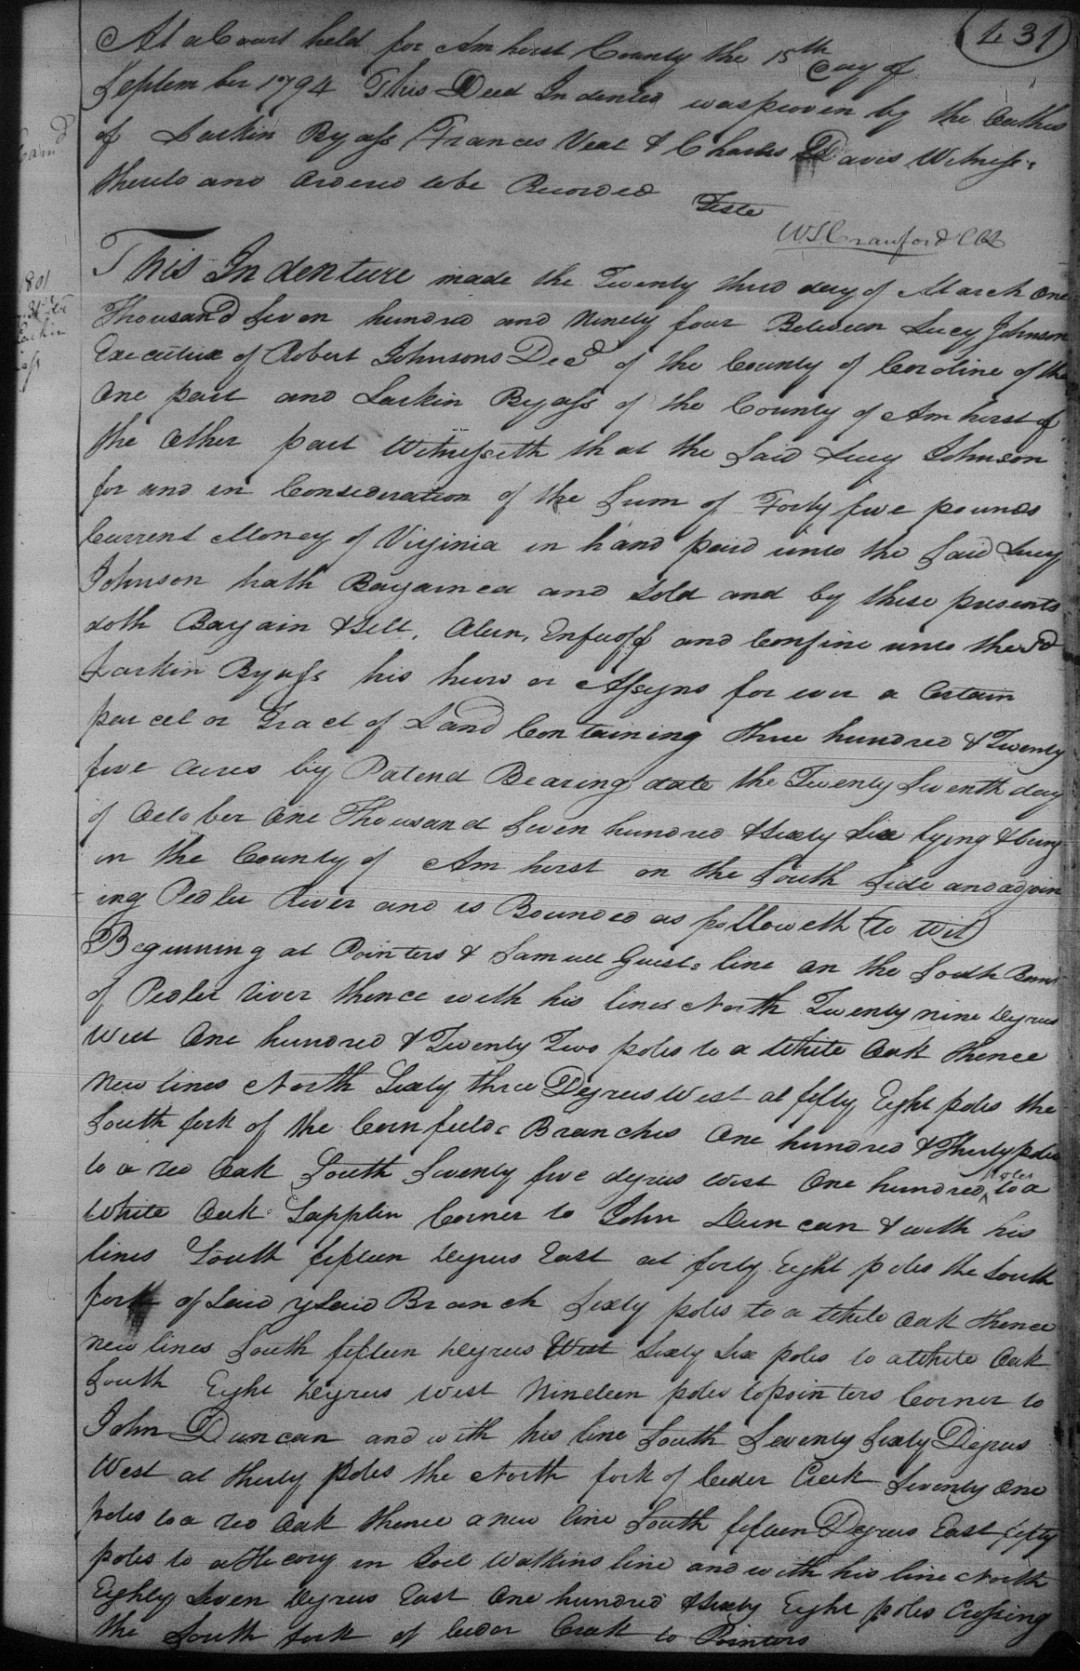 431
At a Court held for Amherst County the 15th day of
September 1794 This Deed Indented was proven by the Oathes
of Larkin Byass Frances Veal & Charles Davis Witness
thereto and Ordered to be Recorded
Teste
W S Crawford CC
This Indenture made the Twenty third day of March One
Thousand Seven hundred and Ninety four Between Lucy Johnson
Executrix of Robert Johnsons Decd of the County of Caroline of the
One part and Larkin Byass of the County of Amherst of
the Other part Witnesseth that the Said Lucy Johnson
for and in Consideration of the Sum of Forty five pounds
Current Money of Virginia in hand paid unto the Said Lucy
Johnson hath Bargained and Sold and by these presents
doth Bargain & Sell, Alien, Enfeoff and Confine unto the Sd
Larkin Byass his heirs or Assigns for ever a Certain
parcel or Tract of Land Containing three hundred & Twenty
five Acres by Patend Bearing date the Twenty Seventh day
of October One Thousand Seven hundred & Sixty Six lying & being
in the County of Amherst on the South Side and adjoin
ing Pedler River and is Bounded as followeth (to Wit)
Beginning at Pointers & Samuel Guests line on the South
of Pedler River thence with his lines North Twenty nine degrees
West One hundred & Twenty Two poles to a White Oak thence
New lines North Sixty three Degrees West at fifty Eight poles the
South fork of the Cornfield Branches One hundred & Thirty poles
to a red Oak South Seventy five degrees West One hundred poles to a
White Oak Sapplin Corner to John Duncan & with his
lines South fifteen degrees East at forty Eight poles the South
fork of Said Branch Sixty poles to a White Oak thence
new lines South fifteen degrees West Sixty Six poles to a White Oak
South Eight degrees West Nineteen poles to pointers Corner to
John Duncan and with his line South Seventy Sixty Degrees
West at thirty poles the North fork of Ceder Creek Seventy One
poles to a red Oak thence a new line South fifteen Degrees East fifty
poles to a Hicory in Joel Watkins line and with his line North
Eighty Seven degrees East One hundred & Sixty Eight poles Crossing
the South fork of Cedar Creek to Pointers